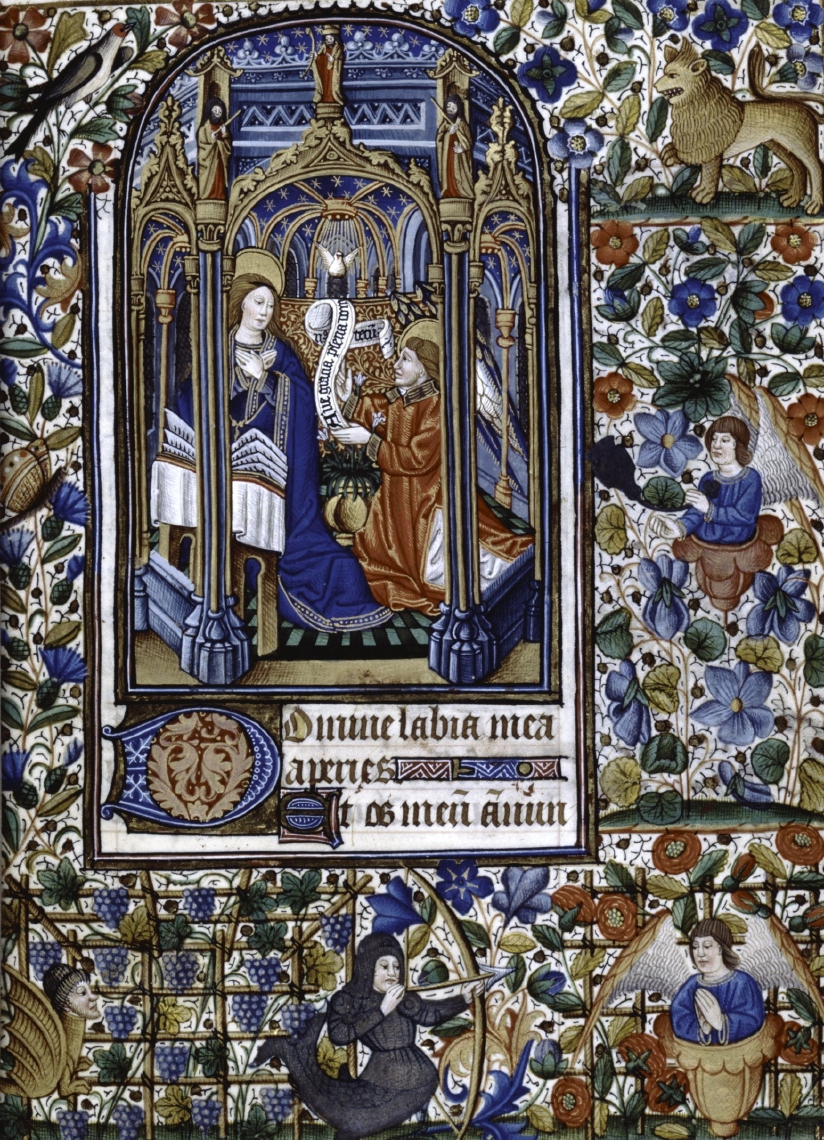 Aue gracia plena
tecū
Domine labia mea
aperies
Et os meū ānun